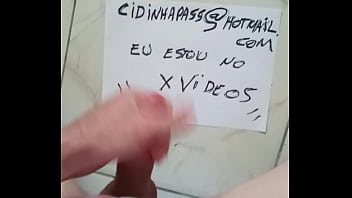 CIDINHAPASS@HOTMAIL.
COM
EU ESTOU NO
"XVIDEOS"